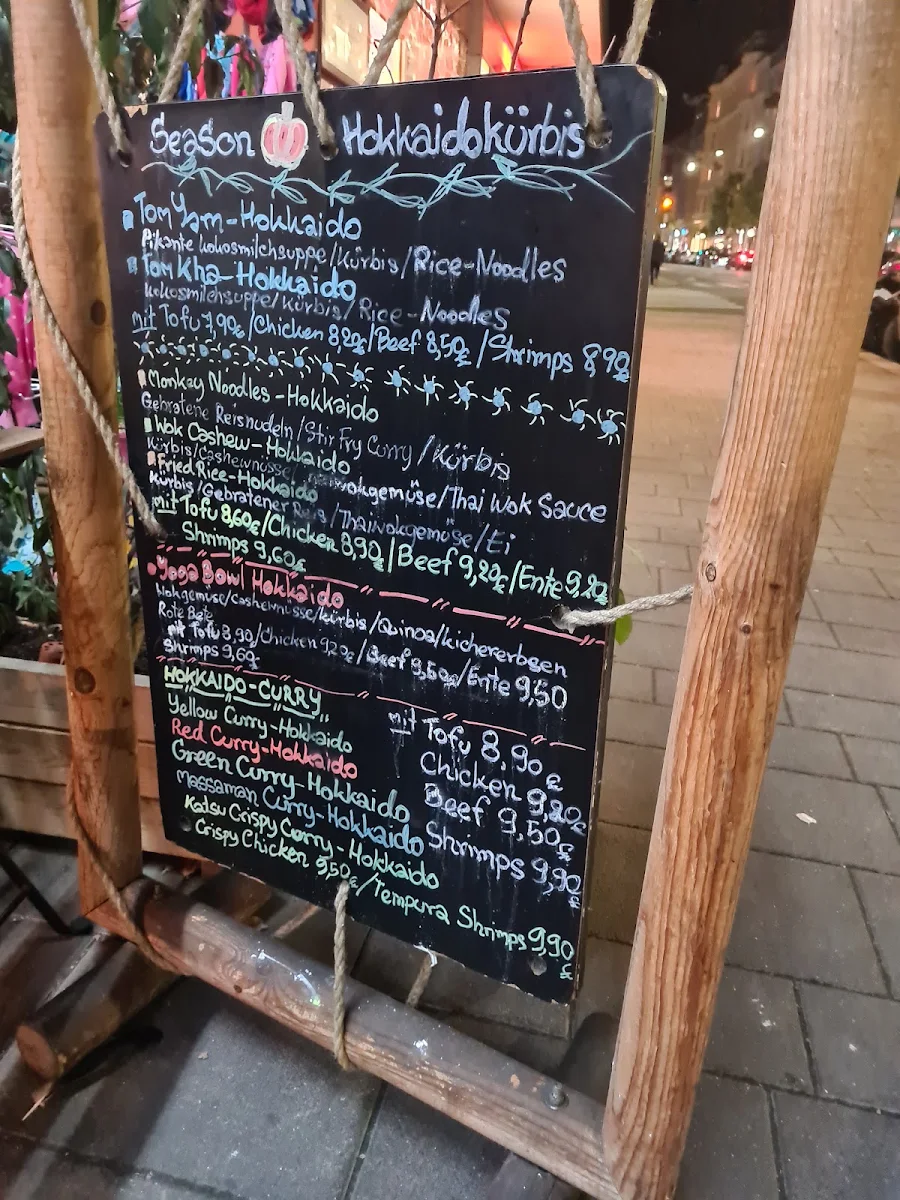 Season Hokkaidokürbis
Tom Yam-Hokkaido
Pikante kokosmilchsuppe/kürbis/Rice-Noodles
Tom Kha-Hokkaido
kokosmilchsuppe/kürbis/Rice-Noodles
mit Tofu 7,90€/Chicken 8,20€/Beef 8,50€/Shrimps 8,90€
Monkay Noodles-Hokkaido
Gebratene Reisnudeln/Stir Fry Curry/Kürbis
Wok Cashew-Hokkaido
Kürbis/Cashewnüsse/Thaiwokgemüse/Thai Wok Sauce
Fried Rice-Hokkaido
Kürbis/Gebratener Reis/Thaiwokgemüse/Ei
mit Tofu 8,60€/Chicken 8,90€/Beef 9,20€/Ente 9,20€
Shrimps 9,60€
Yoga Bowl Hokkaido
Wokgemüse/Cashewnüsse/kürbis/Quinoa/kichererbsen
Rote Bete
mit Tofu 8,90/Chicken 9,20€/Beef 9,50€/Ente 9,50
Shrimps 9,60
HOKKAIDO-CURRY
Yellow Curry-Hokkaido
Red Curry-Hokkaido
Green Curry-Hokkaido
Massaman Curry-Hokkaido
mit Tofu 8,90€
Chicken 9,20€
Beef 9,50€
Shrimps 9,90€
Katsu Crispy Curry-Hokkaido
Crispy Chicken 9,50€/Tempura Shrimps 9,90€